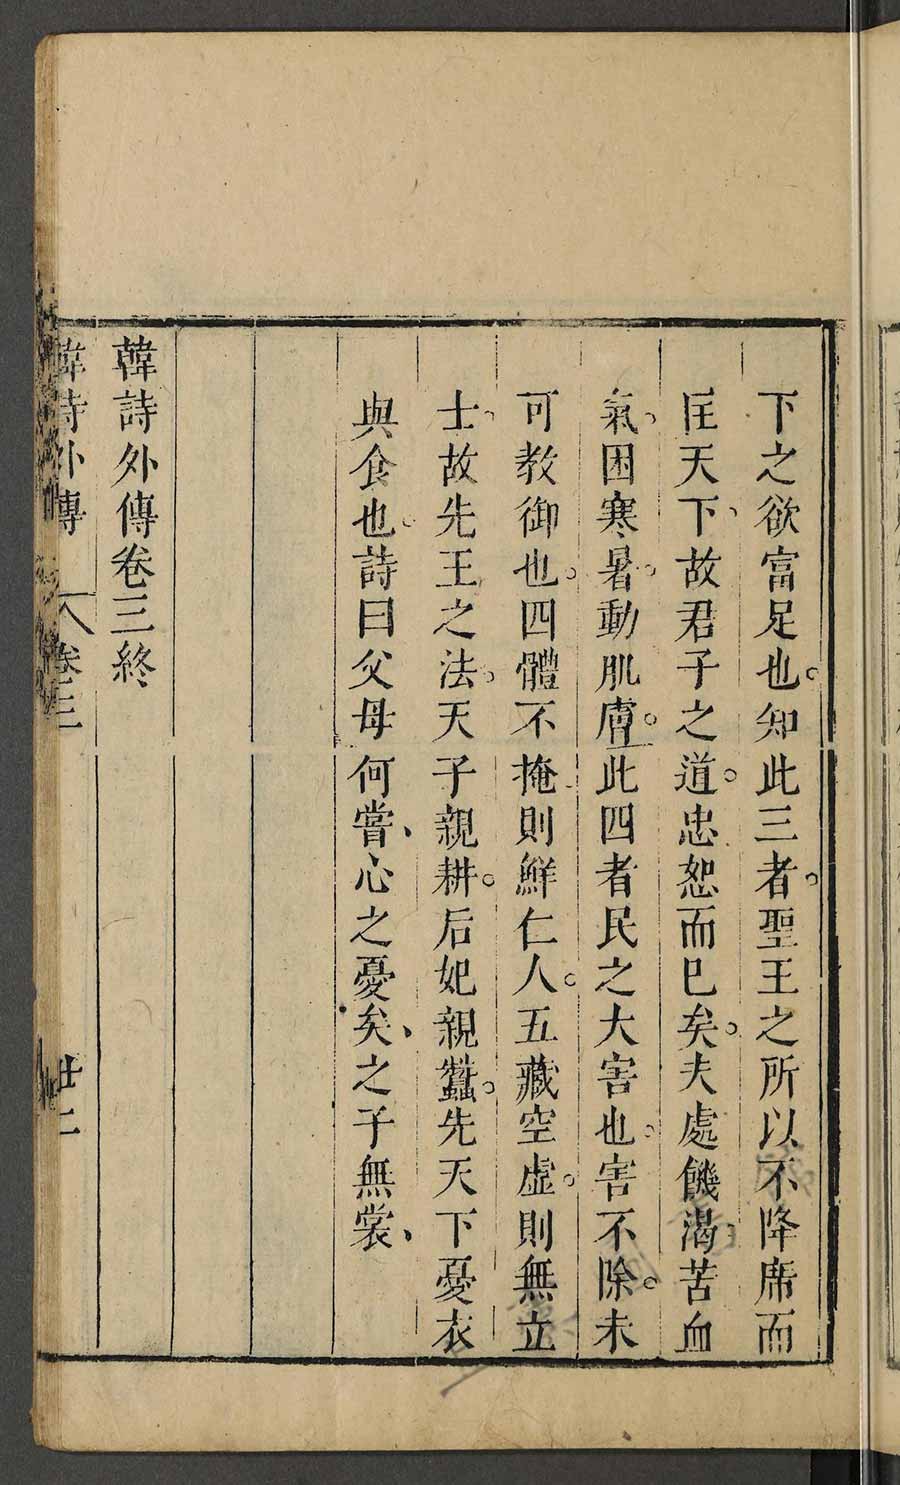 下之欲富足也。知此三者。聖王之所以不降席而
匡天下、故君子之道。忠恕而已矣。夫處饑渴、苦血
氣。困寒暑。動肌膚。此四者民之大害也。害不除。未
可教御也。四體不掩、則鮮仁人。五藏空虛。則無立
士、故先王之法。天子親耕。后妃親蠶。先天下憂衣
與食也。詩曰父母何嘗、心之憂矣、之子無裳、
韓詩外傳卷三終
韓詩外傳 卷三 廿二